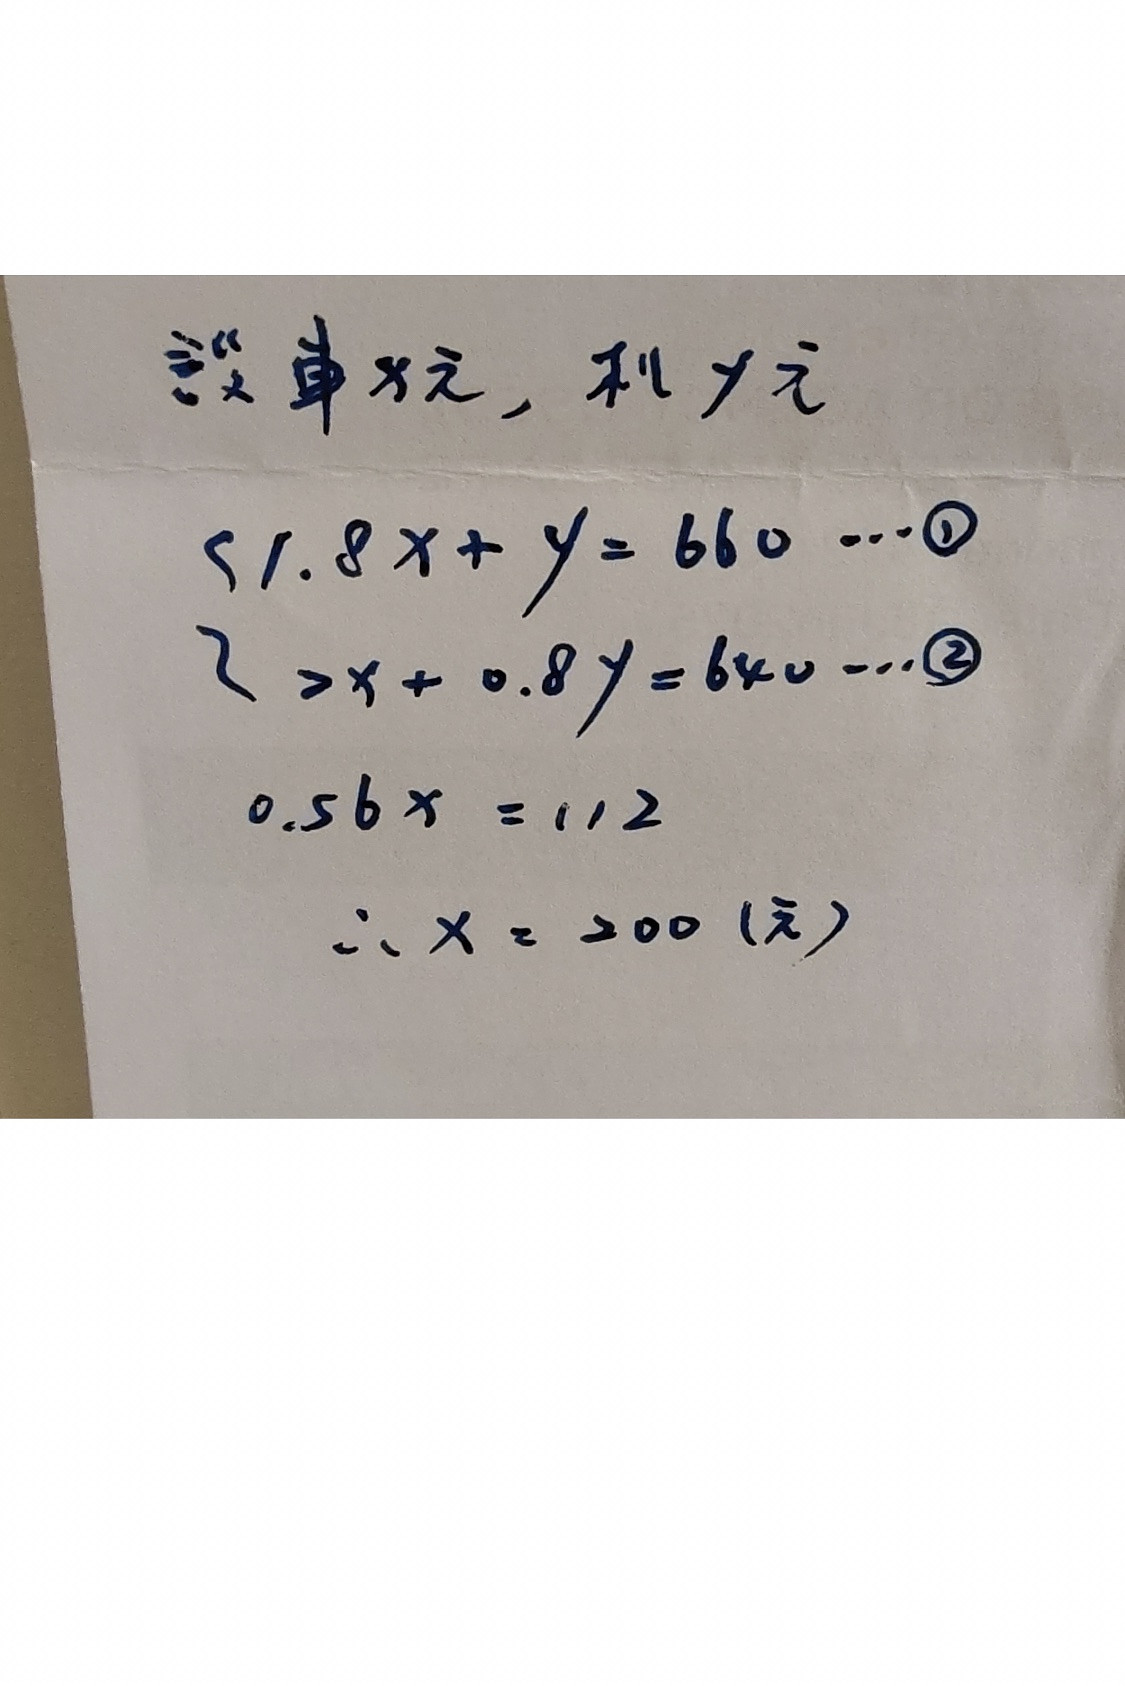 設車x元, 机y元
{1.8x+y=660 ...①
2x+0.8y=640 ...②
0.56x=112
∴x=200(元)